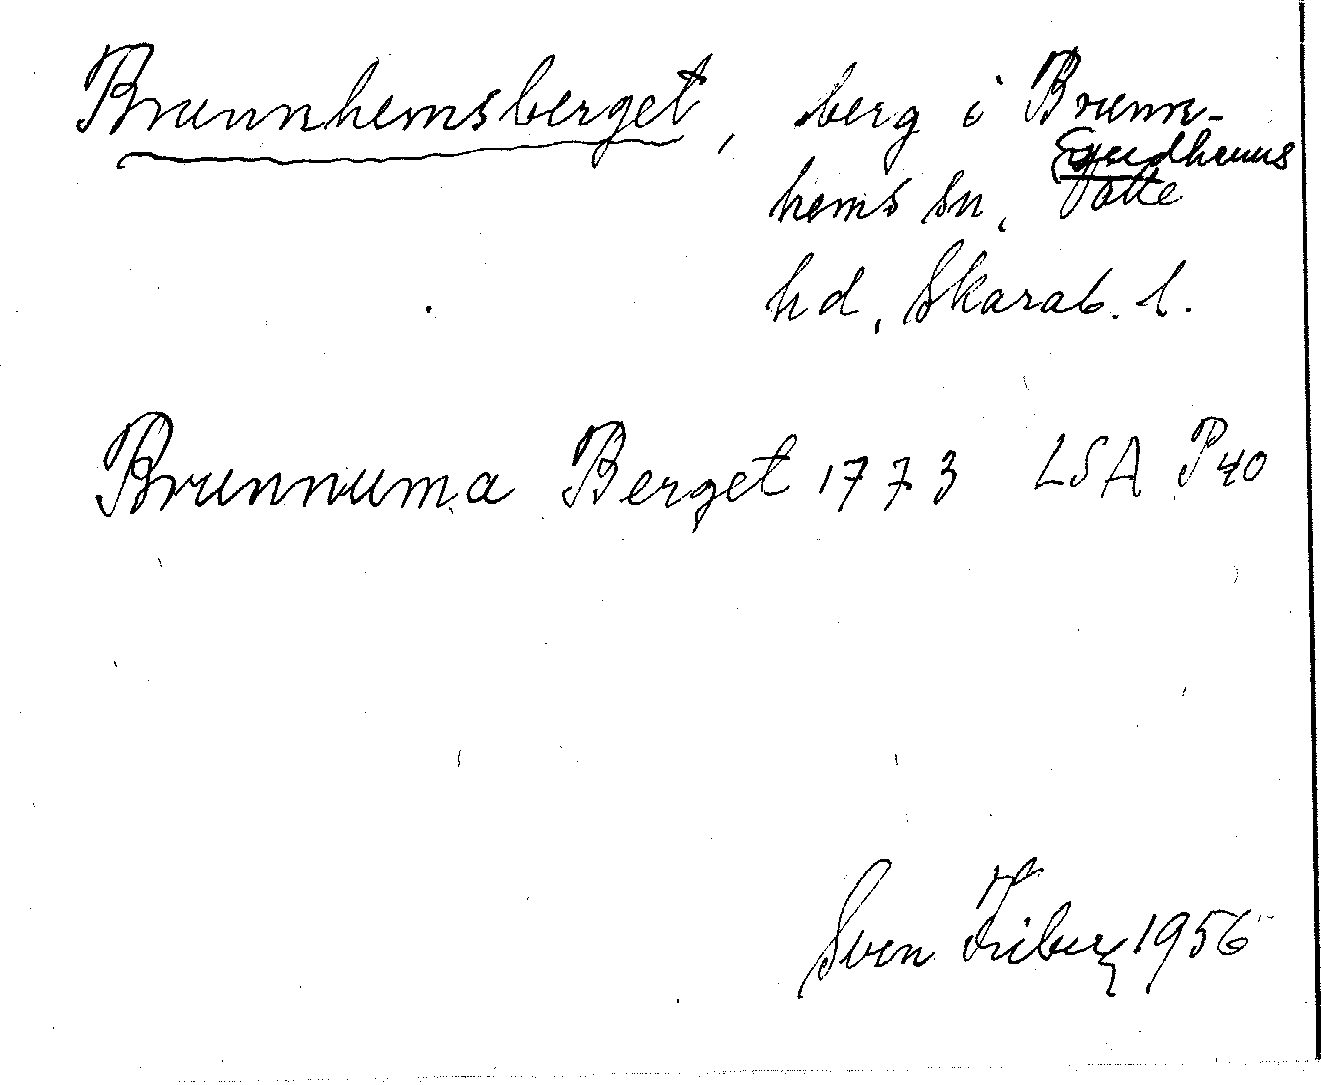 Brunnhemsberget, berg i Brunn-
Gudhems
hems sn, Valle
hd, Skarab. l.
Brunnuma Berget 1773 LSA P40
Sven Friberg 1956